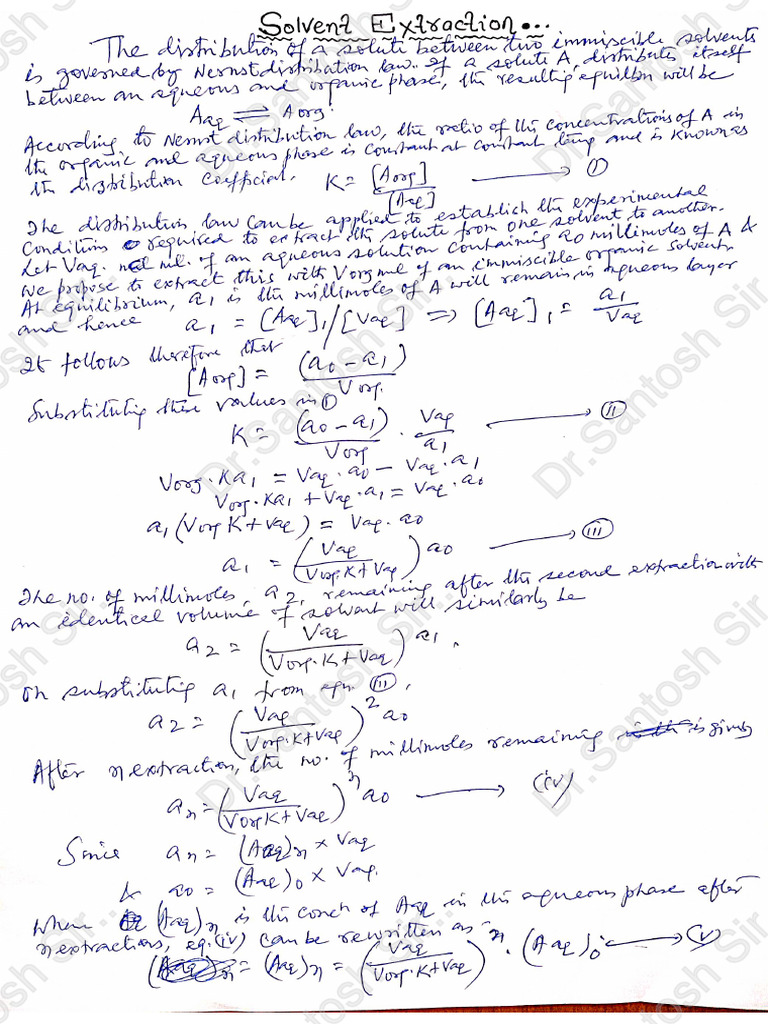 Solvent Extraction...
The distribution of a solute between two immiscible solvents
is governed by Nernst distribution law. If a solute A, distributes itself
between an aqueous and organic phase, the resulting equilbm will be
Aaq ⇌ Aorg.
According to Nernst distribution law, the ratio of the concentrations of A in
the organic and aqueous phase is constant at constant temp and is known as
the distribution coefficient. K = [Aorg]/[Aaq] → (I)
The distribution law can be applied to establish the experimental
conditions required to extract the solute from one solvent to another.
Let Vaq. ml. of an aqueous solution containing a0 millimoles of A &
we propose to extract this with Vorg ml of an immiscible organic solvent.
At equilibrium, a1 is the millimoles of A will remain in aqueous layer
and hence a1 = [Aaq]1/[Vaq] ⇒ [Aaq]1 = a1/Vaq
It follows therefore that
[Aorg] = (a0 - a1)/Vorg.
Substituting these values in (I)
K = (a0 - a1)/Vorg · Vaq/a1 → (II)
Vorg. Ka1 = Vaq. a0 - Vaq. a1
Vorg. Ka1 + Vaq. a1 = Vaq. a0
a1 (Vorg K + Vaq) = Vaq. a0
a1 = (Vaq/(Vorg K + Vaq)) a0 → (III)
The no. of millimoles, a2, remaining after the second extraction with
an identical volume of solvent will similarly be
a2 = (Vaq/(Vorg. K + Vaq)) a1.
On substituting a1 from eqn. (III),
a2 = (Vaq/(Vorg. K + Vaq))² a0
After n extraction, the no. of millimoles remaining is given
an = (Vaq/(Vorg K + Vaq))ⁿ a0 → (iv)
Since an = (Aaq)n × Vaq
& a0 = (Aaq)0 × Vaq.
Where (Aaq)n is the concn of Aaq in the aqueous phase after
n extractions, eq. (iv) can be rewritten as
(Aaq)n = (Vaq/(Vorg. K + Vaq))ⁿ . (Aaq)0 → (V)
Dr.Santosh Sir...